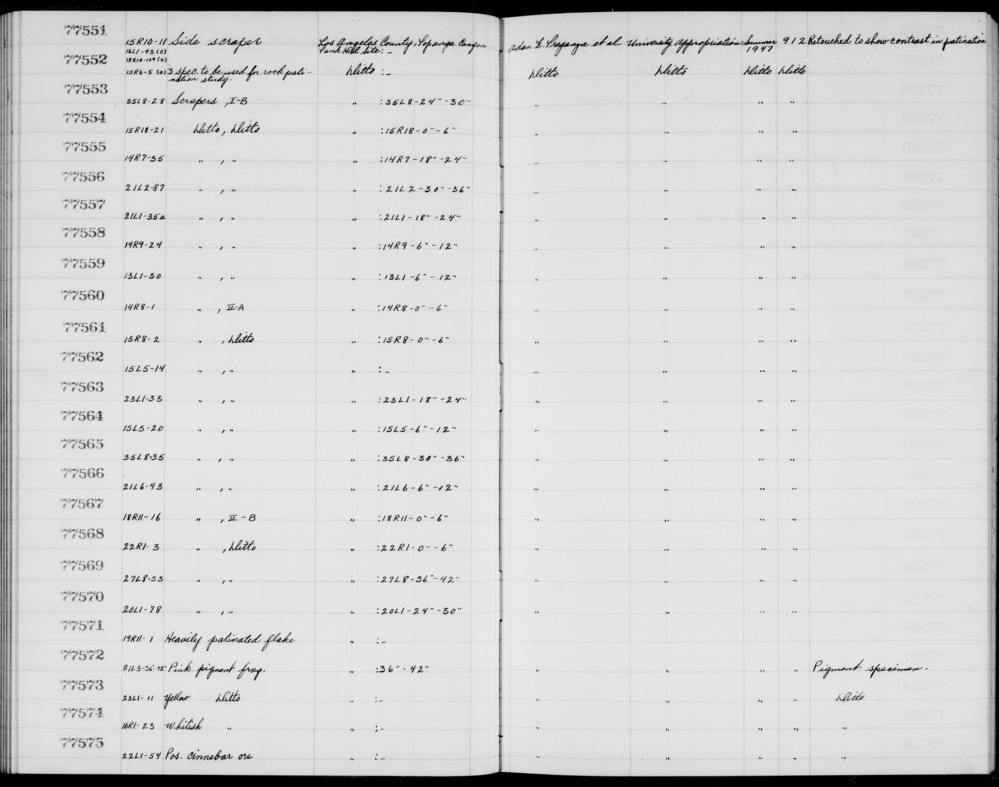 77551
15R10-11 Side scraper Los Angeles County, Topanga Canyon Tank Hill Site:- Adan E. Treganza et al University Appropriation Summer 1947 912 Retouched to show contrast in patination
77552
16L1-93(c)
18R10-119(b)
15R6-5(a) 3 spec. to be used for rock pati- Ditto:- Ditto Ditto Ditto Ditto
nation study.
77553
35L8-28 Scrapers, I-B " :35L8-24"-30" " " " "
77554
15R18-21 Ditto, Ditto " :15R18-0"-6" " " " "
77555
14R7-35 " , " " :14R7-18"-24" " " " "
77556
21L2-87 " , " " :21L2-30"-36" " " " "
77557
21L1-35a " , " " :21L1-18"-24" " " " "
77558
14R9-24 " , " " :14R9-6"-12" " " " "
77559
13L1-30 " , " " :13L1-6"-12" " " " "
77560
14R8-1 " , II-A " :14R8-0"-6" " " " "
77561
15R8-2 " , Ditto " :15R8-0"-6" " " " "
77562
15L5-14 " , " " :- " " " "
77563
23L1-33 " , " " :23L1-18"-24" " " " "
77564
15L5-20 " , " " :15L5-6"-12" " " " "
77565
35L8-35 " , " " :35L8-30"-36" " " " "
77566
21L6-43 " , " " :21L6-6"-12" " " " "
77567
18R11-16 " , II-B " :18R11-0"-6" " " " "
77568
22R1-3 " , Ditto " :22R1-0"-6" " " " "
77569
27L8-53 " , " " :27L8-36"-42" " " " "
77570
20L1-78 " , " " :20L1-24"-30" " " " "
77571
19R11-1 Heavily patinated flake " :- " " " "
77572
21L3-36- Pink pigment frag. " :36"-42" " " " " Pigment specimen.
77573
23L1-11 Yellow Ditto " :- " " " " Ditto
77574
16R1-23 Whitish " " :- " " " " "
77575
22L1-54 Pos. cinnebar ore " :- " " " " "